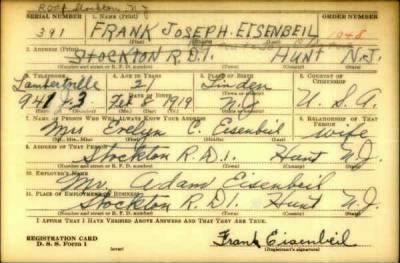 SERIAL NUMBER 1. NAME (Print) ORDER NUMBER
391 FRANK JOSEPH EISENBEIL 1048
(First) (Middle) (Last)
2. ADDRESS (Print)
STOCKTON R.D.1. HUNT N.J.
(Number and street or R. F. D. number) (Town) (County) (State)
3. TELEPHONE 4. AGE IN YEARS 5. PLACE OF BIRTH 6. COUNTRY OF CITIZENSHIP
Lambertville 21 Linden
DATE OF BIRTH
941 J-3 Feb 2 1919 N.J. U.S.A.
7. NAME OF PERSON WHO WILL ALWAYS KNOW YOUR ADDRESS 8. RELATIONSHIP OF THAT PERSON
Mrs Evelyn C. Eisenbeil wife
(Mr., Mrs., Miss) (First) (Middle) (Last)
9. ADDRESS OF THAT PERSON
Stockton R.D.1. Hunt N.J.
(Number and street or R. F. D. number) (Town) (County) (State)
10. EMPLOYER'S NAME
Mr. Adam Eisenbeil
11. PLACE OF EMPLOYMENT OR BUSINESS
Stockton R.D.1. Hunt N.J.
(Number and street or R. F. D. number) (Town) (County) (State)
I AFFIRM THAT I HAVE VERIFIED ABOVE ANSWERS AND THAT THEY ARE TRUE.
REGISTRATION CARD
D. S. S. Form 1 (over) Frank Eisenbeil
(Registrant's signature)